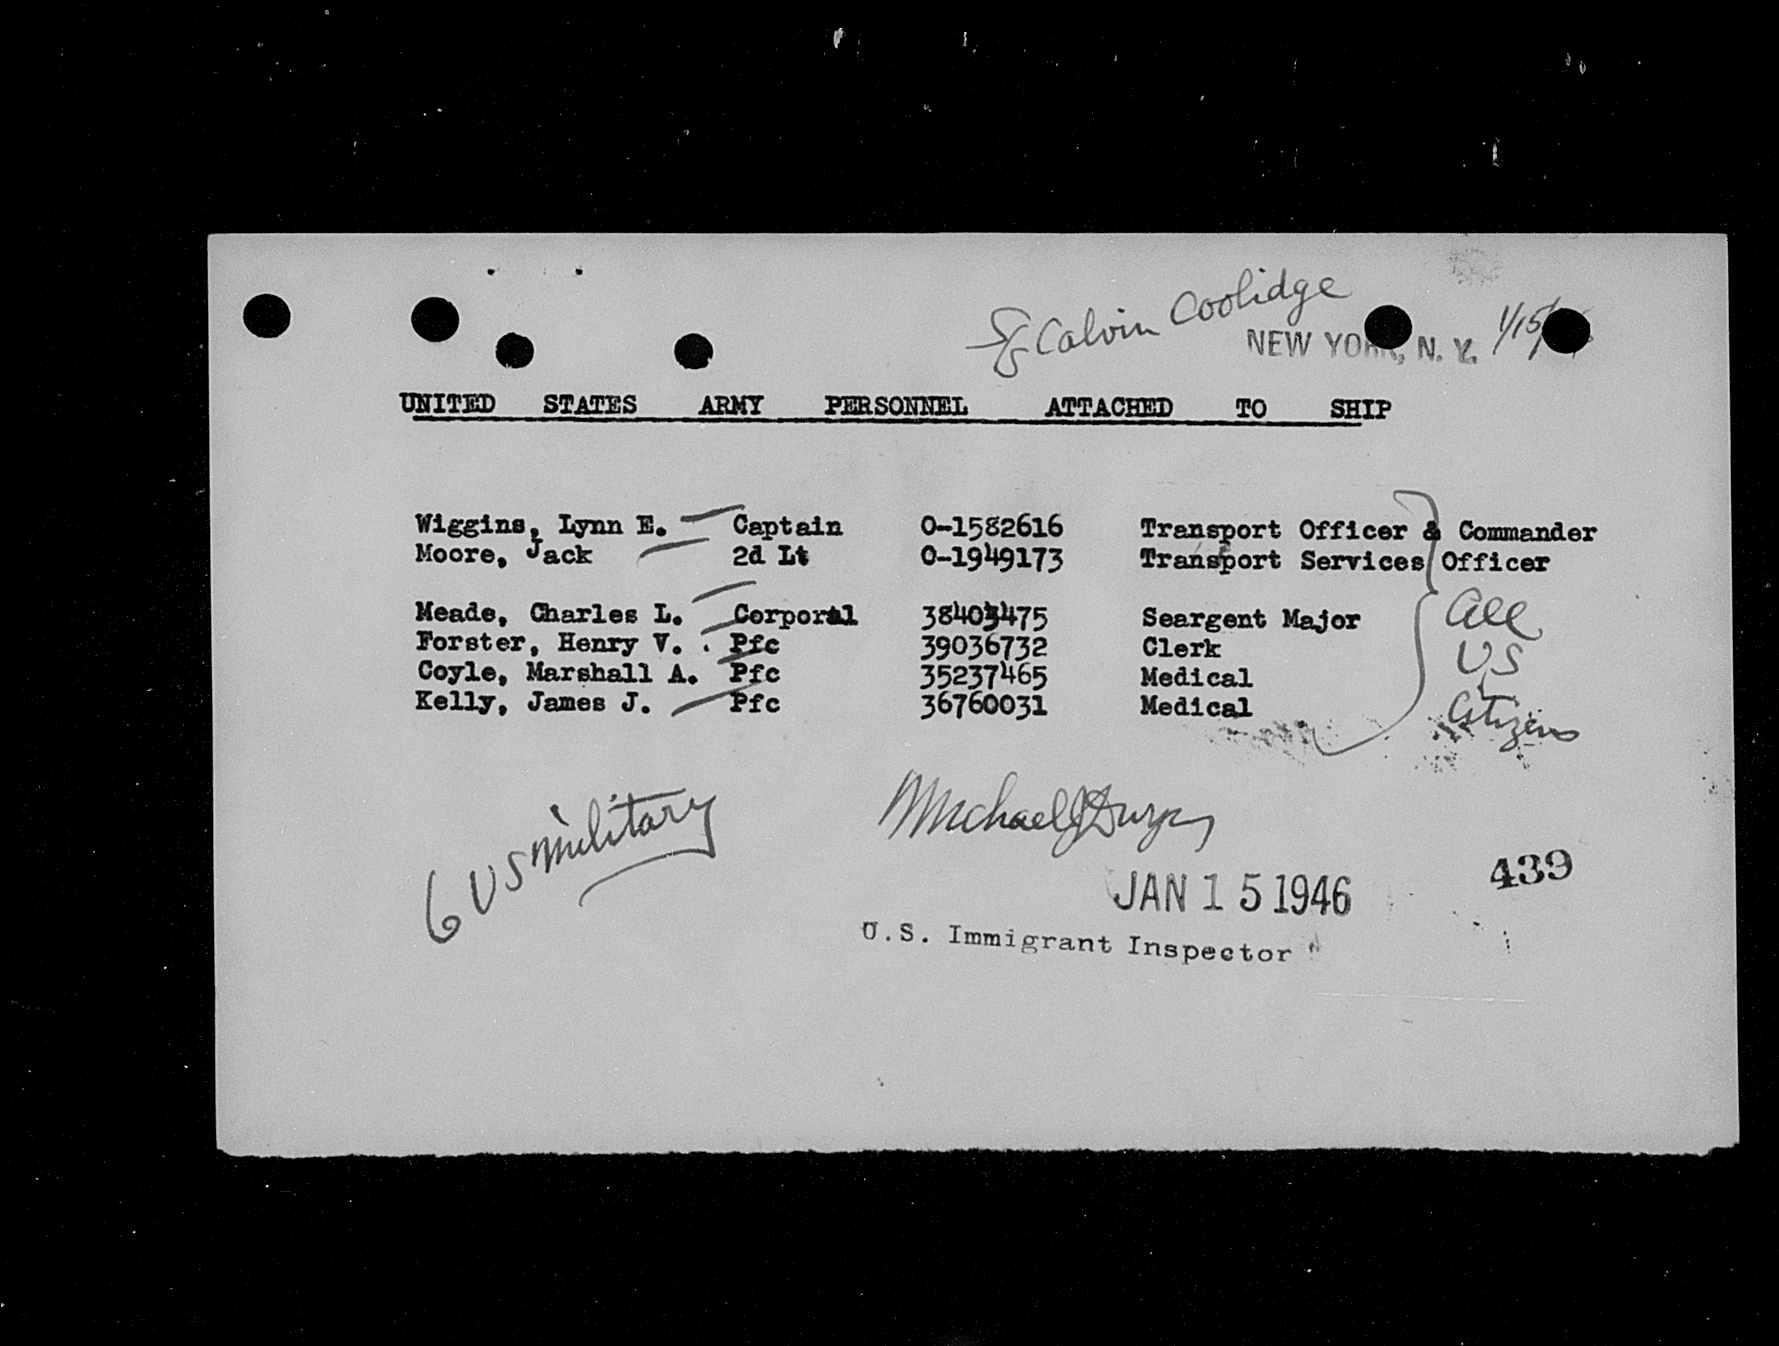 SS Calvin Coolidge
NEW YORK, N. Y. 1/15/
UNITED STATES ARMY PERSONNEL ATTACHED TO SHIP
Wiggins, Lynn E. Captain O-1582616 Transport Officer & Commander
Moore, Jack 2d Lt O-1949173 Transport Services Officer
Meade, Charles L. Corporal 38403475 Seargent Major
Forster, Henry V. Pfc 39036732 Clerk
Coyle, Marshall A. Pfc 35237465 Medical
Kelly, James J. Pfc 36760031 Medical
All
US
Citizens
6 US Military
Michael J
JAN 15 1946
439
U.S. Immigrant Inspector